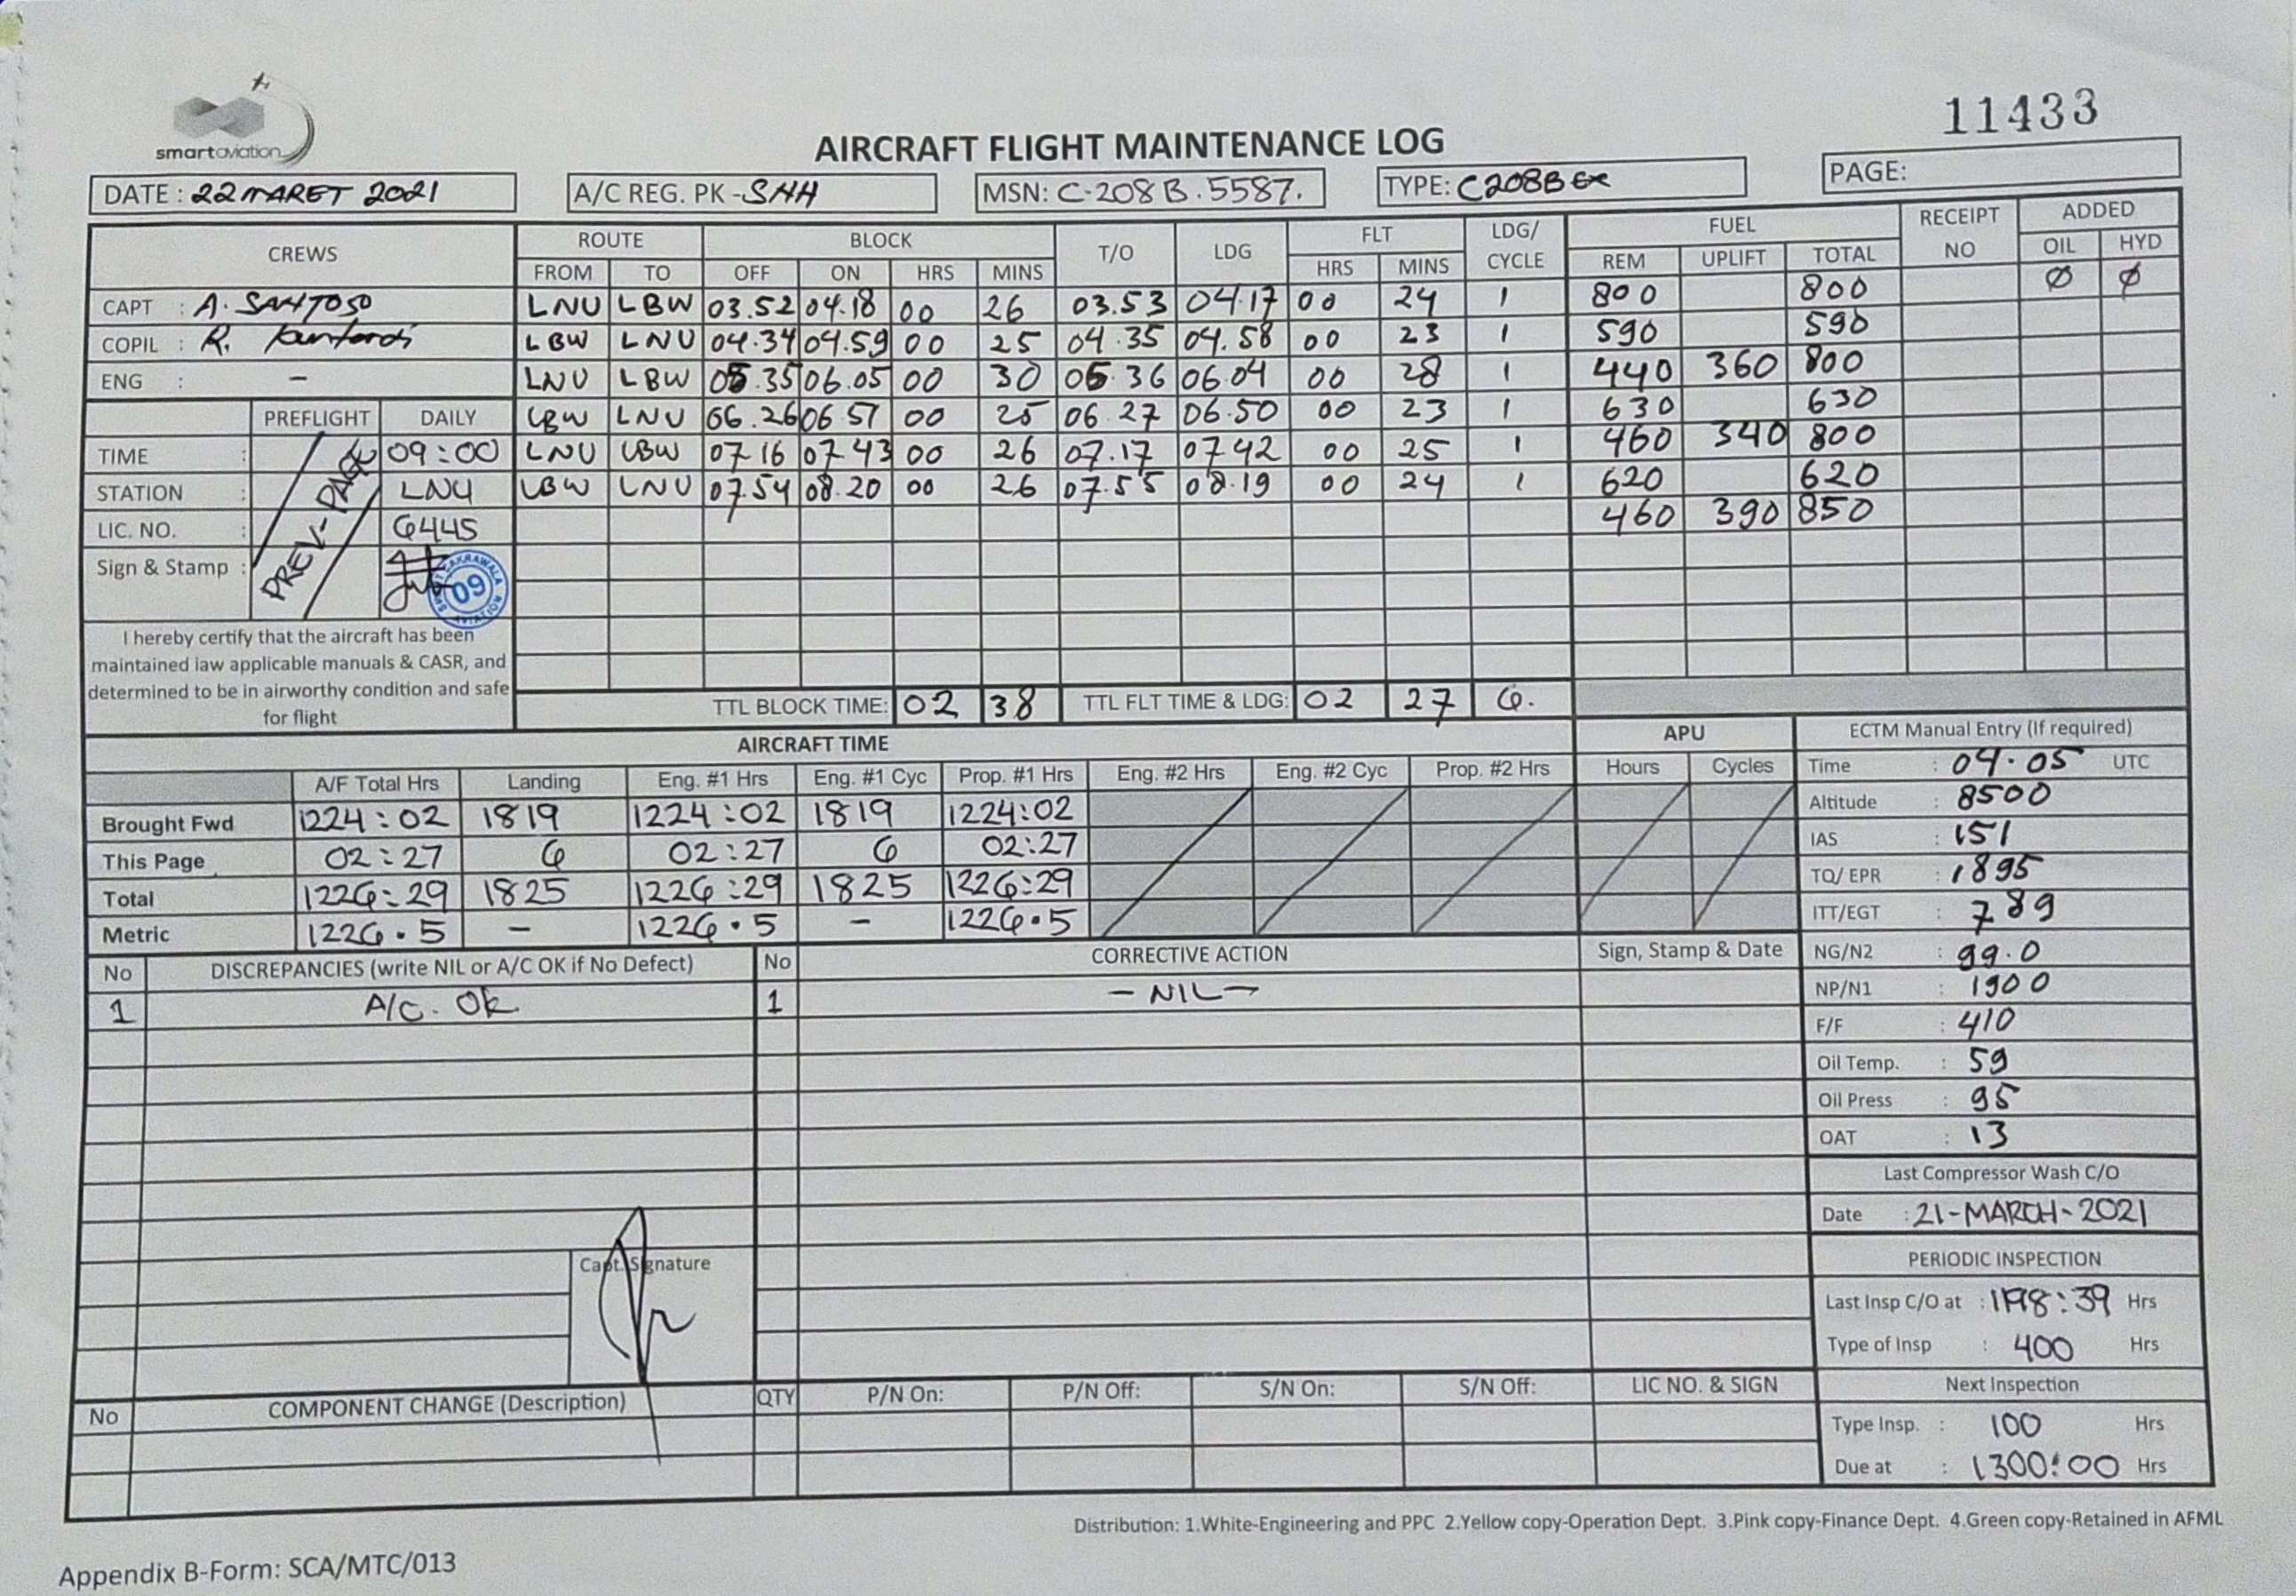 smartaviation
11433
AIRCRAFT FLIGHT MAINTENANCE LOG
DATE : 22 MARET 2021 A/C REG. PK - SHH MSN: C-208B.5587. TYPE: C208B EX PAGE:
CREWS ROUTE BLOCK T/O LDG FLT LDG/ CYCLE FUEL RECEIPT NO ADDED
FROM TO OFF ON HRS MINS HRS MINS REM UPLIFT TOTAL OIL HYD
CAPT : A. SANTOSO LNU LBW 03.52 04.18 00 26 03.53 04.17 00 24 1 800 800 Ø Ø
COPIL : R. LBW LNU 04.34 04.59 00 25 04.35 04.58 00 23 1 590 590
ENG : – LNU LBW 05.35 06.05 00 30 05.36 06.04 00 28 1 440 360 800
PREFLIGHT DAILY LBW LNU 06.26 06.51 00 25 06.27 06.50 00 23 1 630 630
TIME : 09:00 LNU LBW 07.16 07.43 00 26 07.17 07.42 00 25 1 460 340 800
STATION : LNU LBW LNU 07.54 08.20 00 26 07.55 08.19 00 24 1 620 620
LIC. NO. : 6445 460 390 850
PREV-PAGE
Sign & Stamp :
09
I hereby certify that the aircraft has been
maintained iaw applicable manuals & CASR, and
determined to be in airworthy condition and safe
for flight
TTL BLOCK TIME: 02 38 TTL FLT TIME & LDG: 02 27 6.
AIRCRAFT TIME APU ECTM Manual Entry (If required)
A/F Total Hrs Landing Eng. #1 Hrs Eng. #1 Cyc Prop. #1 Hrs Eng. #2 Hrs Eng. #2 Cyc Prop. #2 Hrs Hours Cycles
Brought Fwd 1224:02 1819 1224:02 1819 1224:02
This Page 02:27 6 02:27 6 02:27
Total 1226:29 1825 1226:29 1825 1226:29
Metric 1226.5 – 1226.5 – 1226.5
Time : 04.05 UTC
Altitude : 8500
IAS : 151
TQ/ EPR : 1895
ITT/EGT : 789
NG/N2 : 99.0
NP/N1 : 1900
F/F : 410
Oil Temp. : 59
Oil Press : 95
OAT : 13
No DISCREPANCIES (write NIL or A/C OK if No Defect) No CORRECTIVE ACTION Sign, Stamp & Date
1 A/C. OK 1 – NIL –
Last Compressor Wash C/O
Date : 21-MARCH-2021
PERIODIC INSPECTION
Last Insp C/O at : 1198:39 Hrs
Type of Insp : 400 Hrs
Next Inspection
Type Insp. : 100 Hrs
Due at : 1300:00 Hrs
Capt. Signature
No COMPONENT CHANGE (Description) QTY P/N On: P/N Off: S/N On: S/N Off: LIC NO. & SIGN
Distribution: 1.White-Engineering and PPC 2.Yellow copy-Operation Dept. 3.Pink copy-Finance Dept. 4.Green copy-Retained in AFML
Appendix B-Form: SCA/MTC/013